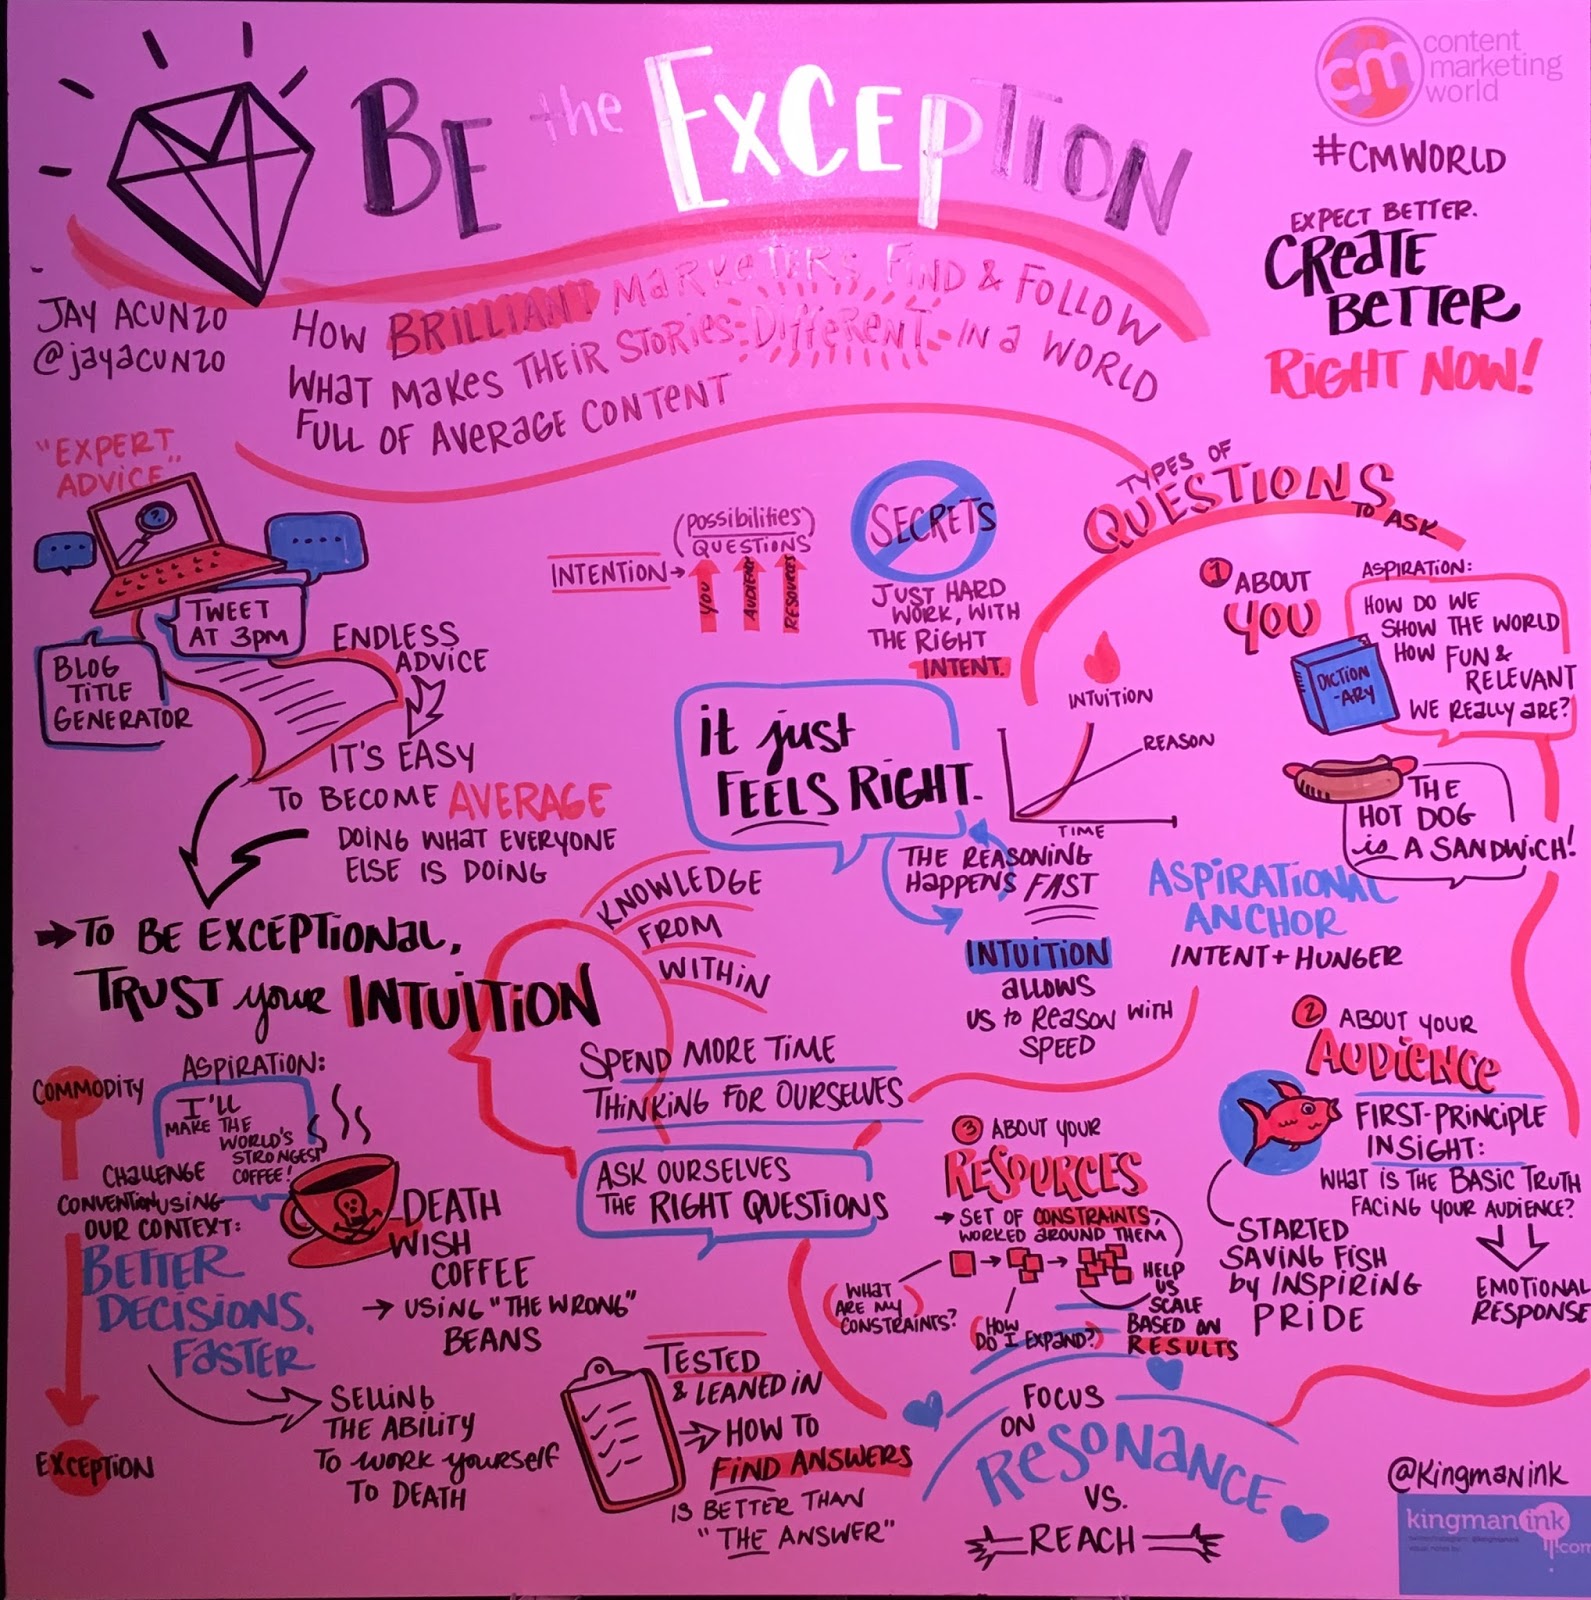 BE the EXCEPTION
content
marketing
world
cm
#CMWORLD
EXPECT BETTER.
CREATE
BETTER
RIGHT NOW!
JAY ACUNZO
@jayacunzo
HOW BRILLIANT MARKETERS FIND & FOLLOW
WHAT MAKES THEIR STORIES DIFFERENT IN A WORLD
FULL OF AVERAGE CONTENT
"EXPERT
ADVICE"
?
TWEET
AT 3PM
BLOG
TITLE
GENERATOR
ENDLESS
ADVICE
IT'S EASY
TO BECOME AVERAGE
DOING WHAT EVERYONE
ELSE IS DOING
TO BE EXCEPTIONAL,
TRUST your INTUITION
KNOWLEDGE
FROM
WITHIN
INTENTION
(POSSIBILITIES)
QUESTIONS
YOU
AUDIENCE
RESOURCES
SECRETS
JUST HARD
WORK, WITH
THE RIGHT
INTENT.
it just
FEELS RIGHT.
INTUITION
REASON
TIME
THE REASONING
HAPPENS FAST
INTUITION
ALLOWS
US to REASON WITH
SPEED
TYPES OF
QUESTIONS
TO ASK
1 ABOUT
YOU
ASPIRATION:
HOW DO WE
SHOW THE WORLD
HOW FUN &
RELEVANT
WE REALLY ARE?
DICTION
-ARY
THE
HOT DOG
is A SANDWICH!
ASPIRATIONAL
ANCHOR
INTENT + HUNGER
2 ABOUT YOUR
AUDIENCE
FIRST-PRINCIPLE
INSIGHT:
WHAT IS THE BASIC TRUTH
FACING YOUR AUDIENCE?
EMOTIONAL
RESPONSE
STARTED
SAVING FISH
by INSPIRING
PRIDE
SPEND MORE TIME
THINKING FOR OURSELVES
ASK OURSELVES
THE RIGHT QUESTIONS
3 ABOUT YOUR
RESOURCES
SET OF CONSTRAINTS,
WORKED AROUND THEM
(WHAT
ARE MY
CONSTRAINTS?)
(HOW
DO I EXPAND?)
HELP
US
SCALE
BASED ON
RESULTS
COMMODITY
ASPIRATION:
I'LL
MAKE THE
WORLD'S
STRONGEST
COFFEE!
CHALLENGE
CONVENTION USING
OUR CONTEXT:
BETTER
DECISIONS,
FASTER
EXCEPTION
DEATH
WISH
COFFEE
USING "THE WRONG"
BEANS
SELLING
THE ABILITY
TO WORK yourself
TO DEATH
TESTED
& LEANED IN
HOW TO
FIND ANSWERS
IS BETTER THAN
"THE ANSWER"
FOCUS
ON
RESONANCE
VS.
REACH
@KINGMANINK
kingman ink
.com